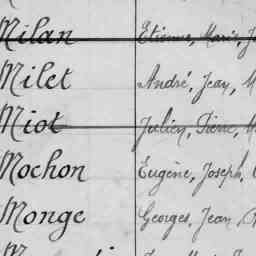 Milan Etienne, Marie, J
Milet André, Jean, M
Miot Julien, Pierre, M
Mochon Eugène, Joseph,
Monge Georges, Jean